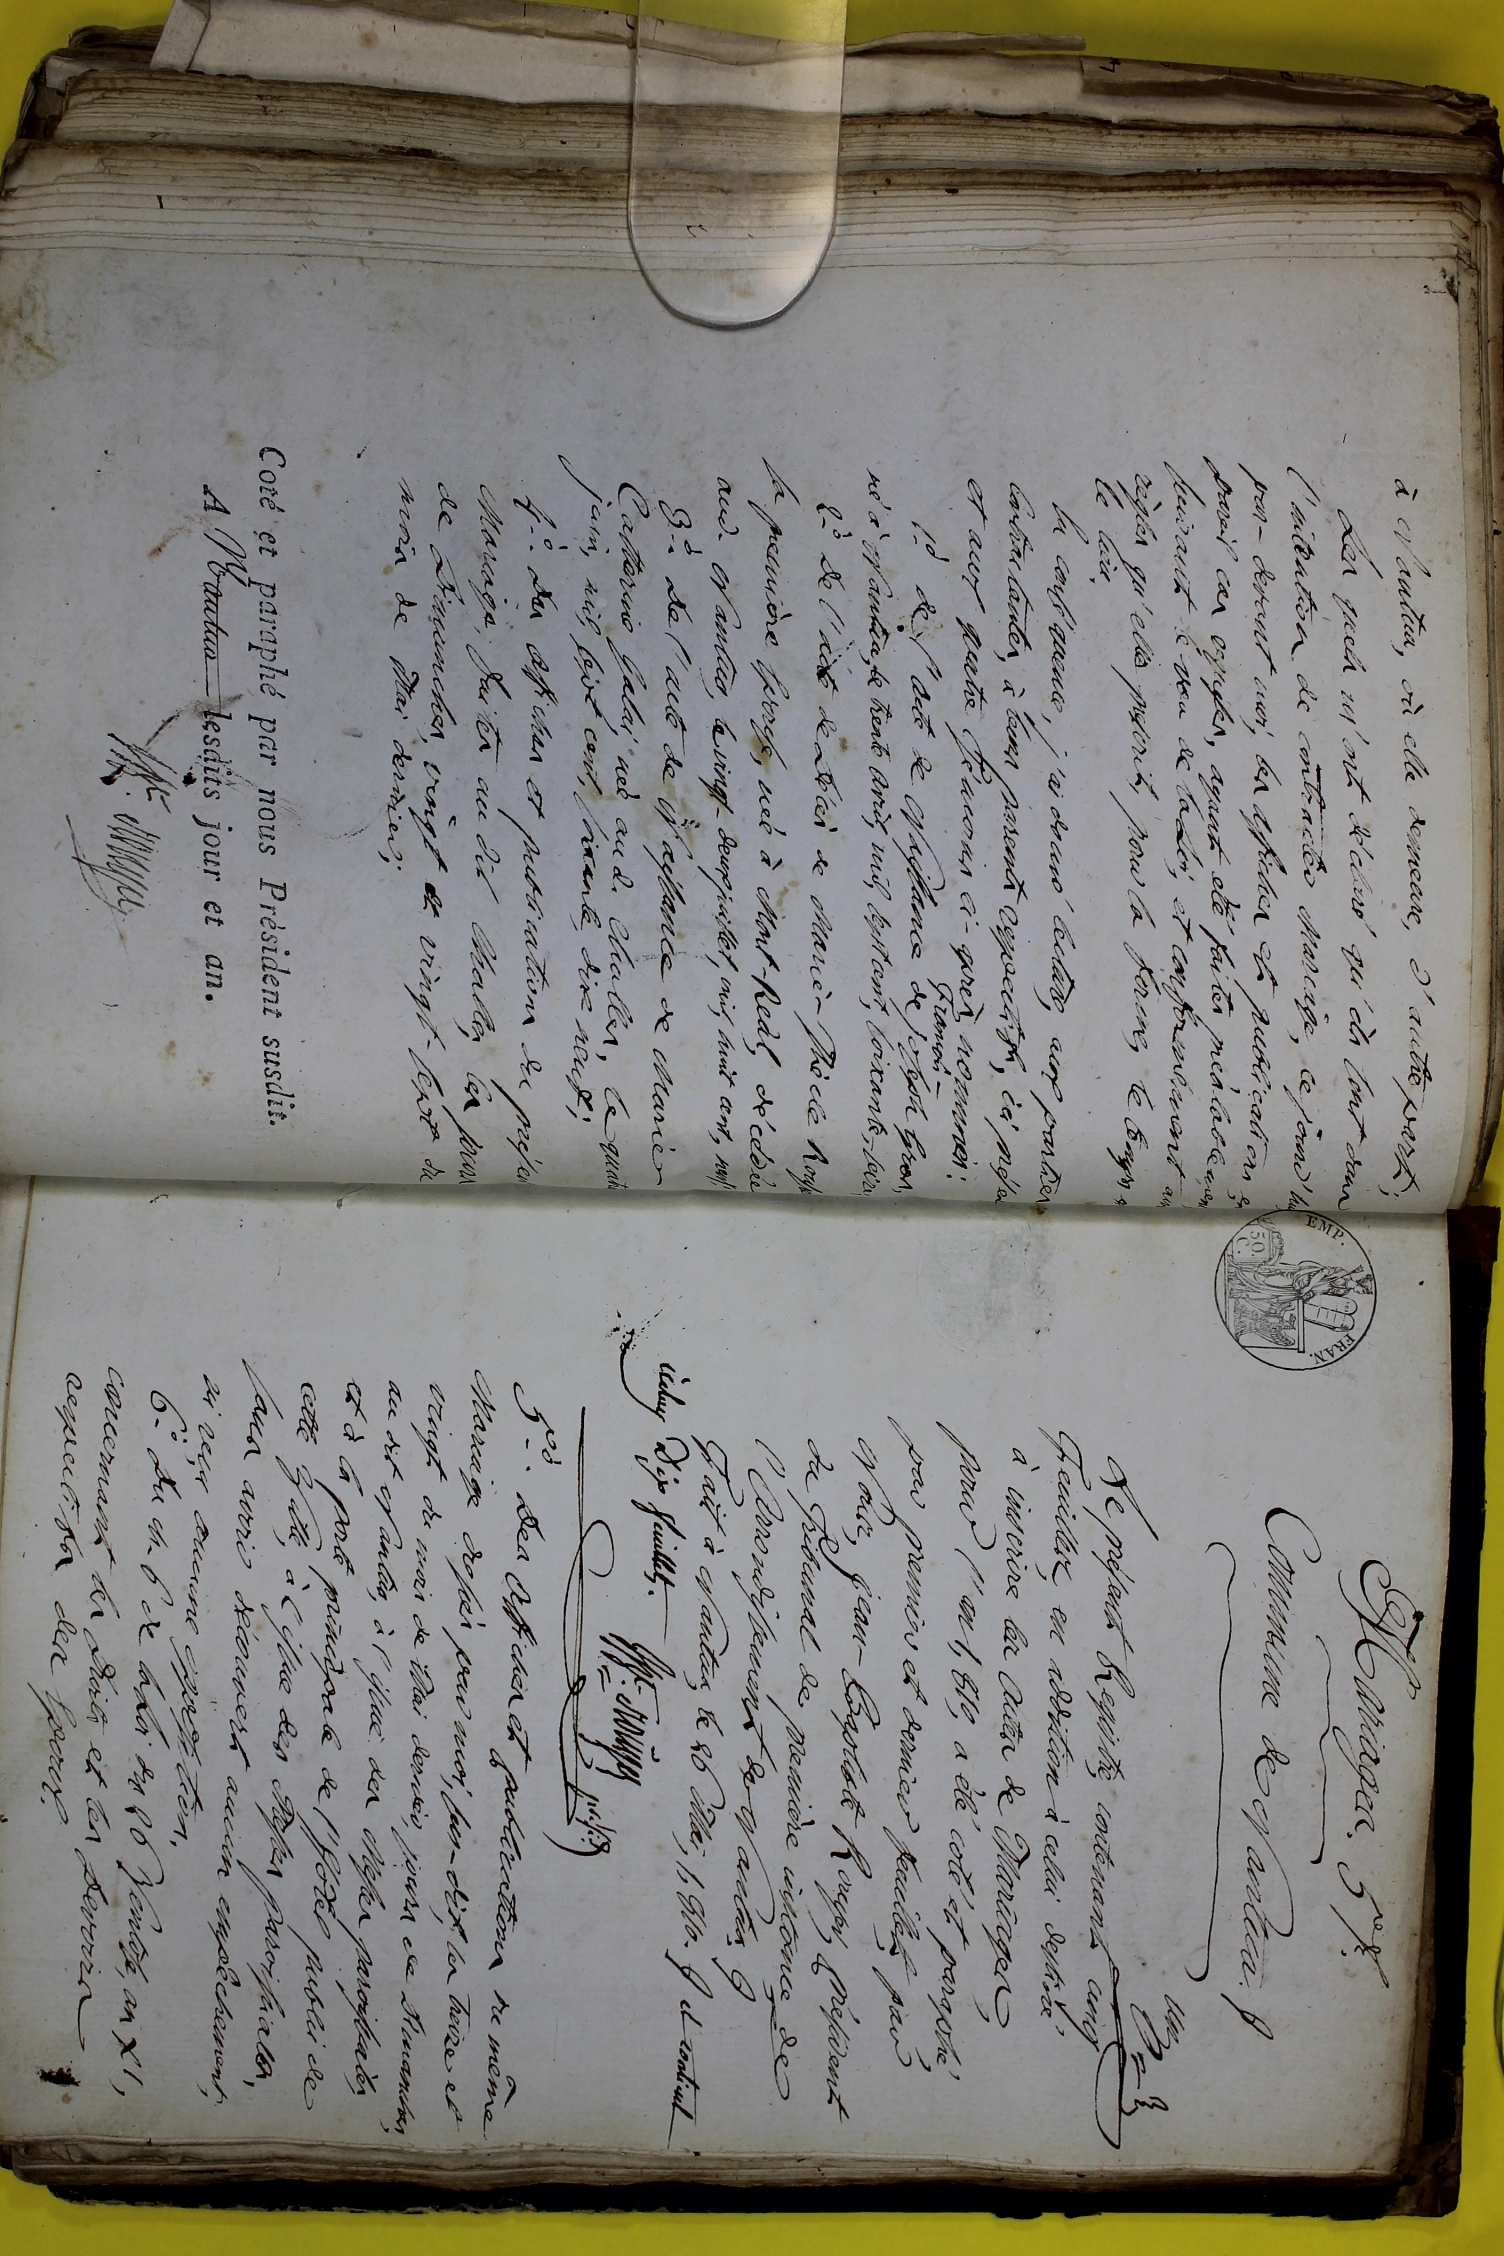 à Nantua, où elle demeure, d'autre part;
Les quels m'ont déclaré qu'ils sont dans
l'intention de contracter Mariage, ce jourd'hui
par-devant moi, les affiches et publications en
pareil cas exigées, ayant été faites préalablement
suivant le vœu de la Loi, et conformément aux
règles qu'elle prescrit, pour la forme, le temps &
le lieu.
En conséquence, j'ai donné lecture, aux parties
contractantes, à leurs parents respectifs, ici présen
et aux quatre témoins ci-après nommés:
1.º de l'acte de naissance de Joseph François Gros,
né à Nantua, le trente avril mil sept cent soixante-seize
2.º de l'acte de décès de Marie-Thècle
la première épouse, née à Mont-Réal, décédée
aud. Nantua, le vingt-deux juillet, mil huit cent, neuf
3.º de l'acte de naissance de Marie
Catherine née aud. Challes, le quatre
juin, mil sept cent, soixante dix neuf;
4.º des affiches et publications du présent
Mariage, faites au dit Challes, les jours
de Dimanches, vingt et vingt-sept du
mois de Mai dernier;
Coté et paraphé par nous Président susdit.
A Nantua lesdits jour et an.
EMP. FRAN.
50. C.
Mariages. 5.
Commune de Nantua.
un
Le présent Registre, contenant cinq
Feuillets, en addition à celui destiné
à inscrire les Actes de Mariages
pour l'an 1,810, a été coté et paraphé,
par premier et dernier feuillets, par
Nous, Jean-Baptiste Président
du Tribunal de première instance de
l'Arrondissement de Nantua.
Fait à Nantua, le 26 1,810.
Dix feuillets.
5.º des Affiches et publications du même
Mariage dressés par moi, sus-dit, les treize et
vingt du mois de Mai dernier, jours de Dimanches,
au dit Nantua, à l'issue des Messes paroissiales,
et à la porte principale de l'hôtel public de
cette Ville, à l'issue des Messes paroissiales,
sans avoir découvert aucun empêchement,
ni reçu aucune opposition.
6.º du ch. 6 de la Loi du 26 Ventôse, an XI,
concernant les Droits et les Devoirs
respectifs des Epoux.